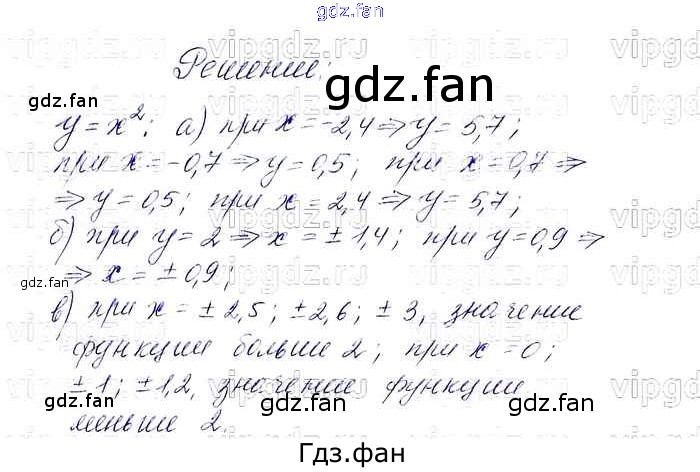 gdz.fan
Решение:
gdz.fan
gdz.fan
y = x²; а) при x = -2,4 ⇒ y = 5,7;
при x = -0,7 ⇒ y = 0,5; при x = 0,7 ⇒
⇒ y = 0,5; при x = 2,4 ⇒ y = 5,7;
б) при y = 2 ⇒ x = ± 1,4; при y = 0,9 ⇒
⇒ x = ± 0,9;
gdz.fan
в) при x = ± 2,5; ± 2,6; ± 3, значение
функции больше 2; при x = 0;
± 1; ± 1,2, значение функции
меньше 2.
gdz.fan
gdz.fan
gdz.fan
Гдз.фан
vipgdz.ru